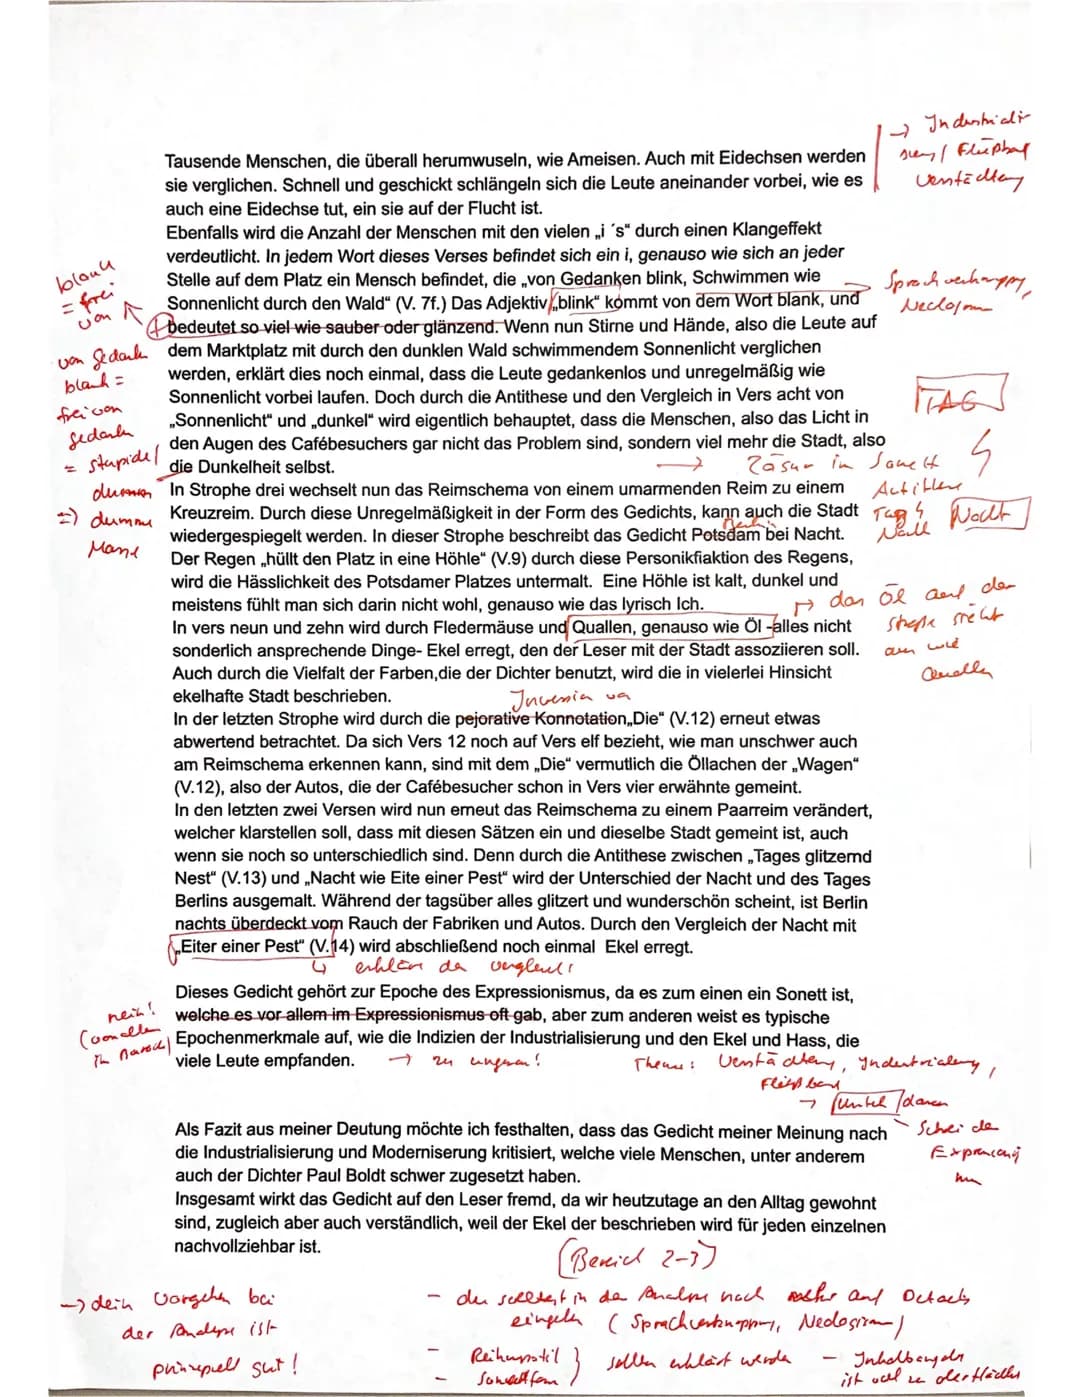 → Industriali-
sierung / Fließband
Verstädterung
Tausende Menschen, die überall herumwuseln, wie Ameisen. Auch mit Eidechsen werden
sie verglichen. Schnell und geschickt schlängeln sich die Leute aneinander vorbei, wie es
auch eine Eidechse tut, ein sie auf der Flucht ist.
Ebenfalls wird die Anzahl der Menschen mit den vielen „i ´s“ durch einen Klangeffekt
verdeutlicht. In jedem Wort dieses Verses befindet sich ein i, genauso wie sich an jeder
Stelle auf dem Platz ein Mensch befindet, die „von Gedanken blink, Schwimmen wie
Sonnenlicht durch den Wald“ (V. 7f.) Das Adjektiv „blink“ kommt von dem Wort blank, und
bedeutet so viel wie sauber oder glänzend. Wenn nun Stirne und Hände, also die Leute auf
dem Marktplatz mit durch den dunklen Wald schwimmendem Sonnenlicht verglichen
werden, erklärt dies noch einmal, dass die Leute gedankenlos und unregelmäßig wie
Sonnenlicht vorbei laufen. Doch durch die Antithese und den Vergleich in Vers acht von
„Sonnenlicht“ und „dunkel“ wird eigentlich behauptet, dass die Menschen, also das Licht in
den Augen des Cafébesuchers gar nicht das Problem sind, sondern viel mehr die Stadt, also
die Dunkelheit selbst.
blank
= frei
von
von Gedank
blank =
frei von
Gedank
= stupide /
⇒ dumme
Masse
Sprachverknappung,
Neologism
TAG
→ Zäsur in Sonett
Antithese
Tag
Nacht
Nacht
In Strophe drei wechselt nun das Reimschema von einem umarmenden Reim zu einem
Kreuzreim. Durch diese Unregelmäßigkeit in der Form des Gedichts, kann auch die Stadt
Berlin
wiedergespiegelt werden. In dieser Strophe beschreibt das Gedicht Potsdam bei Nacht.
Der Regen „hüllt den Platz in eine Höhle“ (V.9) durch diese Personikfiaktion des Regens,
wird die Hässlichkeit des Potsdamer Platzes untermalt. Eine Höhle ist kalt, dunkel und
meistens fühlt man sich darin nicht wohl, genauso wie das lyrisch Ich.
In vers neun und zehn wird durch Fledermäuse und Quallen, genauso wie Öl -alles nicht
sonderlich ansprechende Dinge- Ekel erregt, den der Leser mit der Stadt assoziieren soll.
Auch durch die Vielfalt der Farben,die der Dichter benutzt, wird die in vielerlei Hinsicht
ekelhafte Stadt beschrieben.
das Öl auf der
Straße sieht
aus wie
Quallen
Inversion von
In der letzten Strophe wird durch die pejorative Konnotation„Die“ (V.12) erneut etwas
abwertend betrachtet. Da sich Vers 12 noch auf Vers elf bezieht, wie man unschwer auch
am Reimschema erkennen kann, sind mit dem „Die“ vermutlich die Öllachen der „Wagen“
(V.12), also der Autos, die der Cafébesucher schon in Vers vier erwähnte gemeint.
In den letzten zwei Versen wird nun erneut das Reimschema zu einem Paarreim verändert,
welcher klarstellen soll, dass mit diesen Sätzen ein und dieselbe Stadt gemeint ist, auch
wenn sie noch so unterschiedlich sind. Denn durch die Antithese zwischen „Tages glitzernd
Nest“ (V.13) und „Nacht wie Eite einer Pest“ wird der Unterschied der Nacht und des Tages
Berlins ausgemalt. Während der tagsüber alles glitzert und wunderschön scheint, ist Berlin
nachts überdeckt vom Rauch der Fabriken und Autos. Durch den Vergleich der Nacht mit
„Eiter einer Pest“ (V.14) wird abschließend noch einmal Ekel erregt.
erklären den Vergleich!
Dieses Gedicht gehört zur Epoche des Expressionismus, da es zum einen ein Sonett ist,
welche es vor allem im Expressionismus oft gab, aber zum anderen weist es typische
Epochenmerkmale auf, wie die Indizien der Industrialisierung und den Ekel und Hass, die
viele Leute empfanden.
nein!
(vor allem
im Barock)
→ zu ungenau!
Thema: Verstädterung, Industrialisierung,
Fließband
→
Als Fazit aus meiner Deutung möchte ich festhalten, dass das Gedicht meiner Meinung nach
die Industrialisierung und Moderniserung kritisiert, welche viele Menschen, unter anderem
auch der Dichter Paul Boldt schwer zugesetzt haben.
Insgesamt wirkt das Gedicht auf den Leser fremd, da wir heutzutage an den Alltag gewohnt
sind, zugleich aber auch verständlich, weil der Ekel der beschrieben wird für jeden einzelnen
nachvollziehbar ist.
(Bereich 2-3)
→ dein Vorgehen bei
der Analyse ist
prinzipiell gut!
- du solltest in der Analyse noch mehr auf Details
eingehen (Sprachverknappung, Neologismen)
- Reihungsstil
- Sonettform
sollen erklärt werden
- Inhaltsangabe
ist viel zu oberflächlich